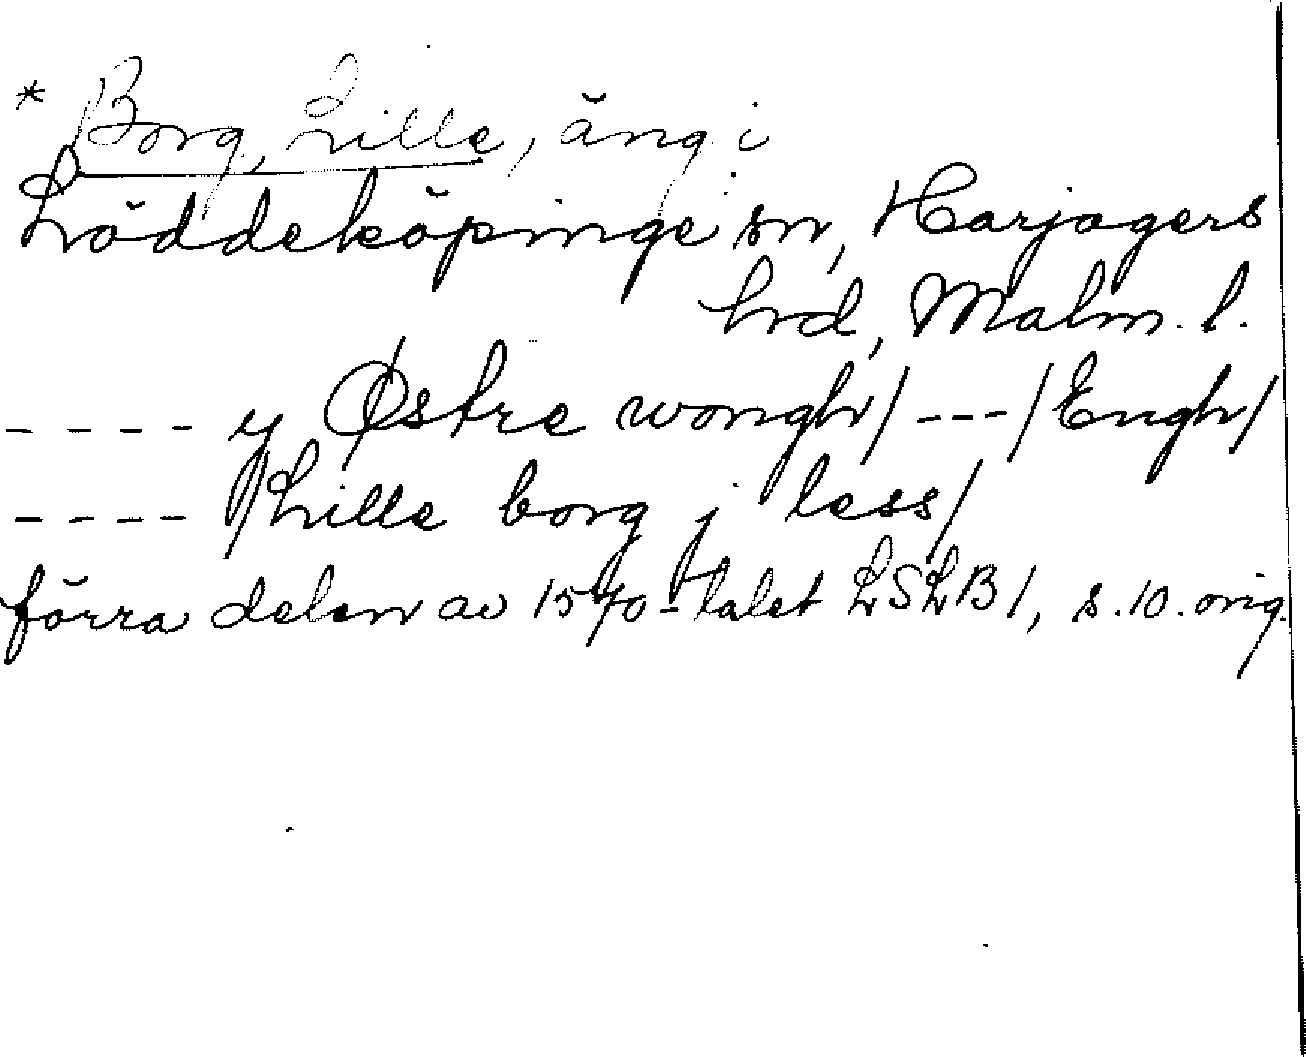 * Borg, Lille, äng i
Löddeköpinge sn, Harjagers
hrd, Malm. l.
---- y Østre wongh/ --- /Engh/
---- /Lille borg j less/
förra delen av 1570-talet LSLB 1, s. 10. orig.